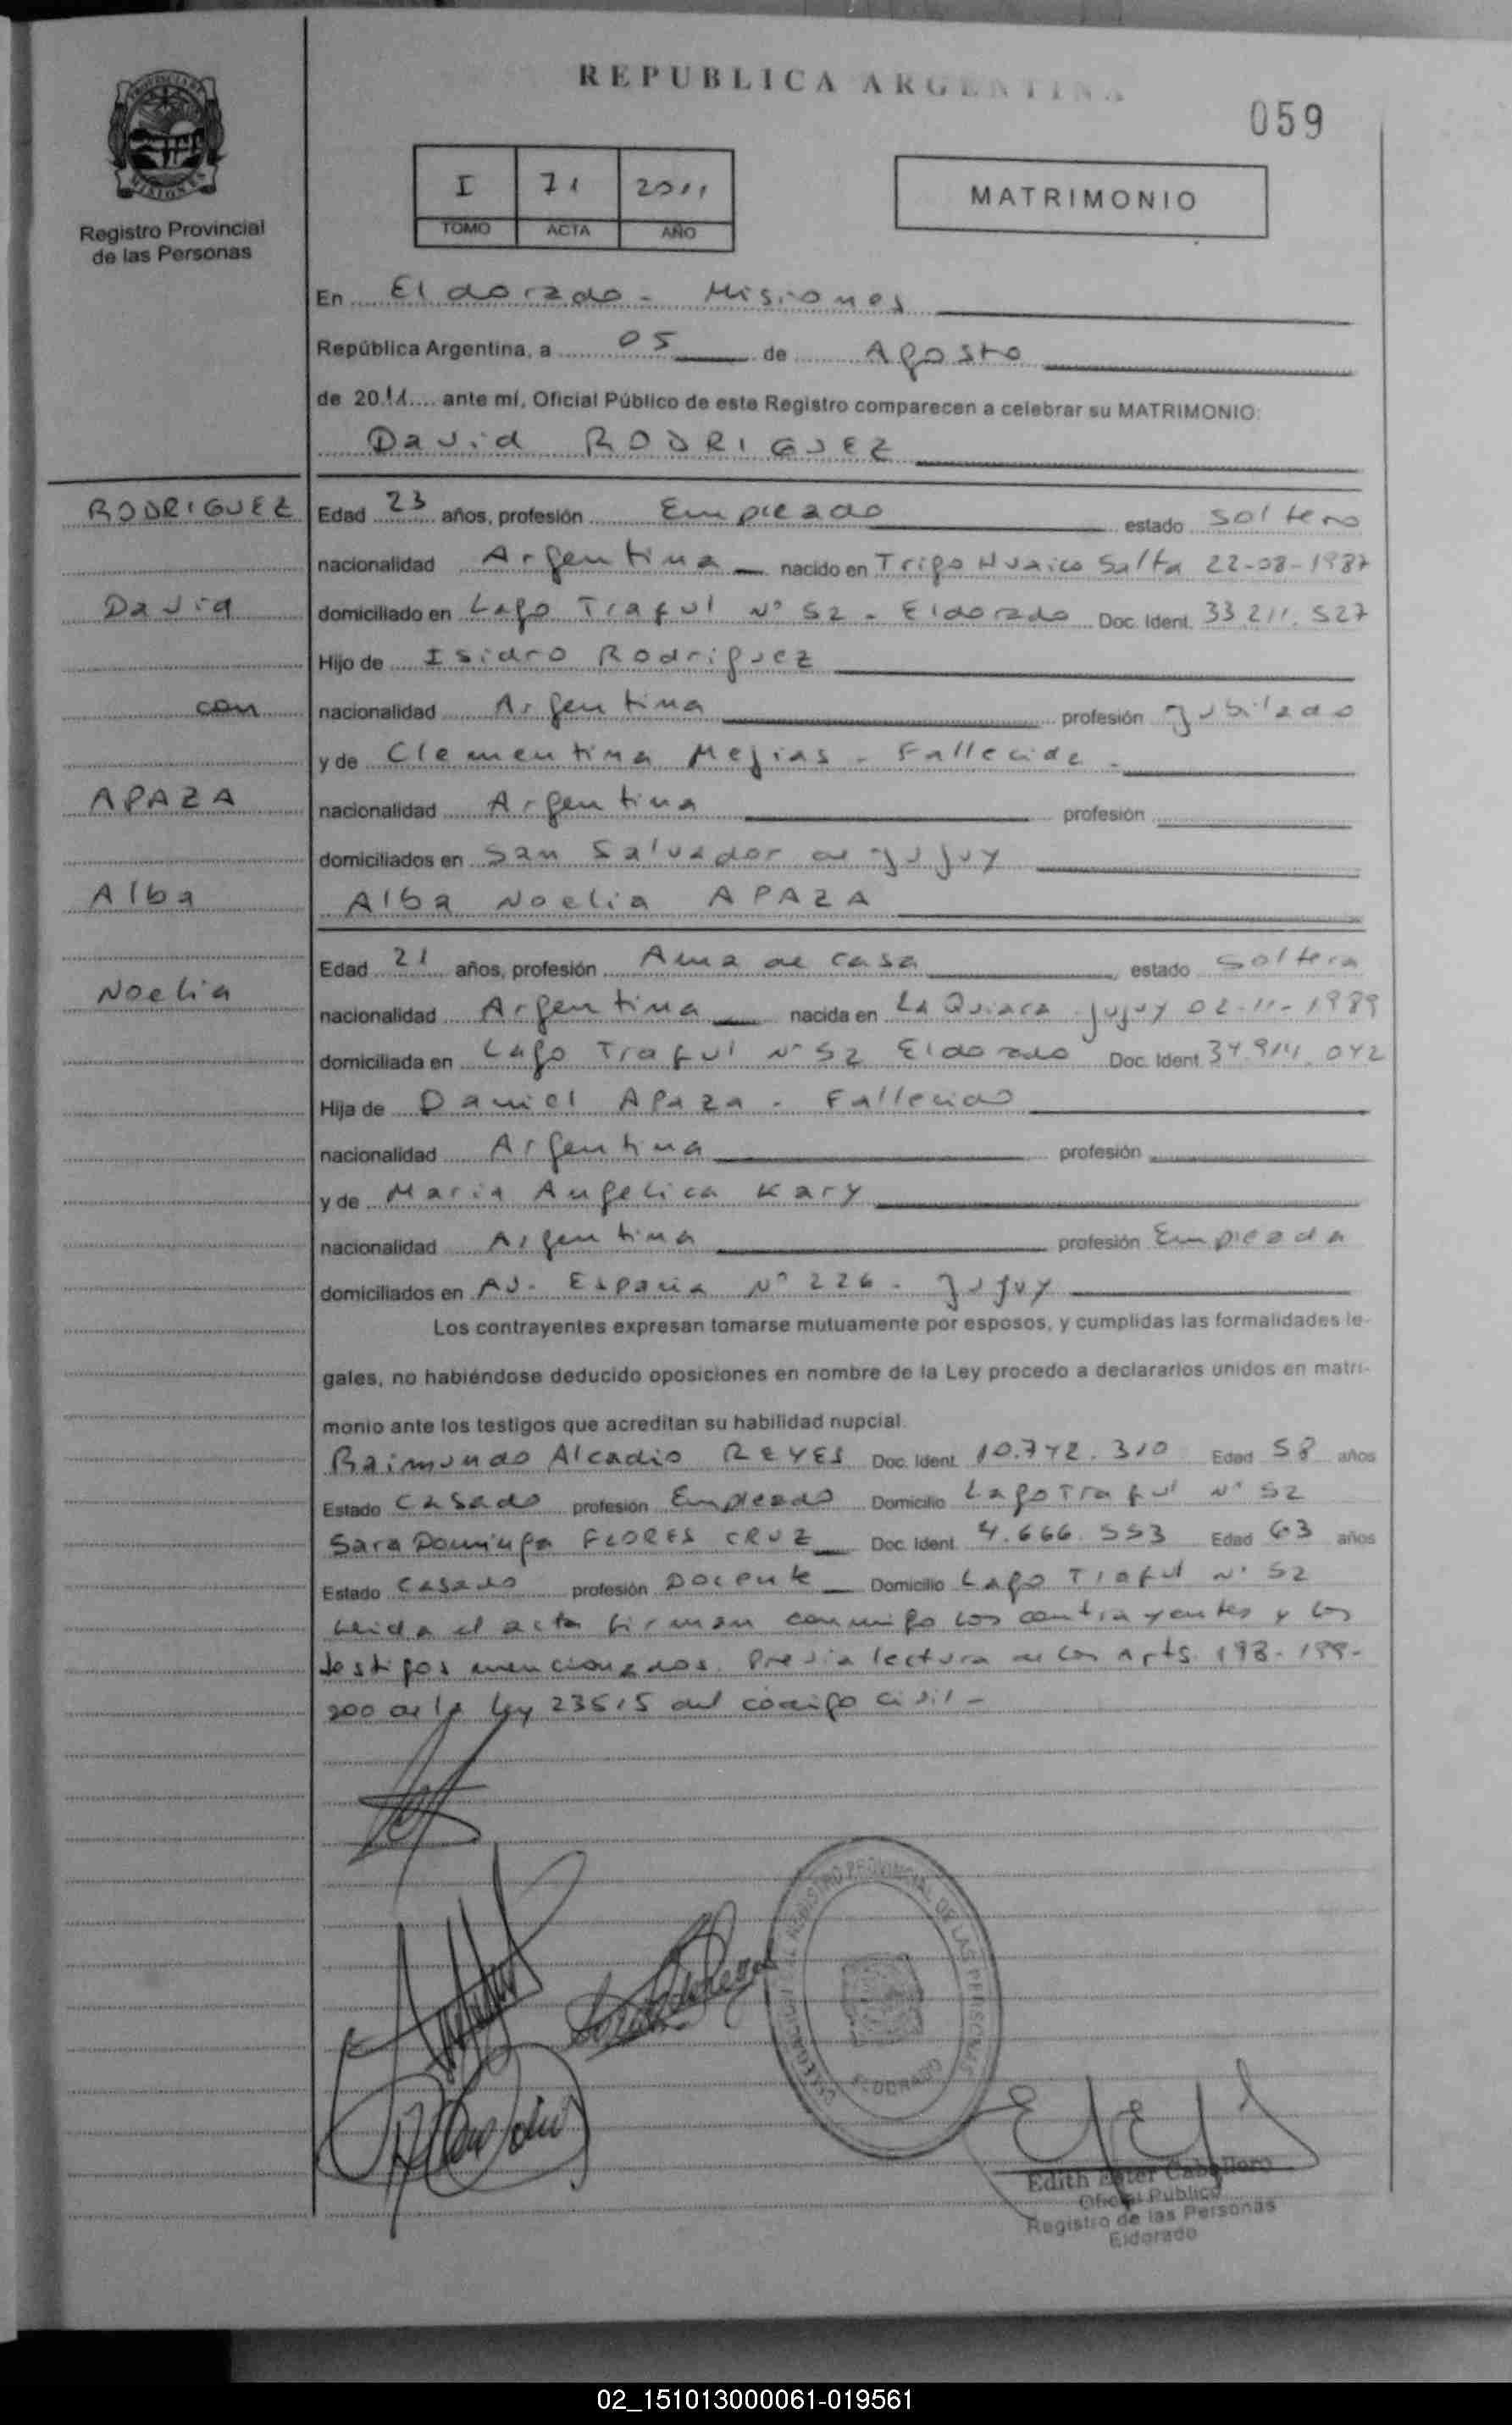 REPUBLICA ARGENTINA
059
PROVINCIA DE
MISIONES
Registro Provincial
de las Personas
I 71 2011
TOMO ACTA AÑO
MATRIMONIO
En Eldorado - Misiones
República Argentina, a 05 de Agosto
de 2011 ante mí, Oficial Público de este Registro comparecen a celebrar su MATRIMONIO:
David RODRIGUEZ
RODRIGUEZ
David
con
APAZA
Alba
Noelia
Edad 23 años, profesión Empleado estado Soltero
nacionalidad Argentina nacido en Trigo Huaico Salta 22-08-1987
domiciliado en Lago Traful N° 52 - Eldorado Doc. Ident. 33.211.527
Hijo de Isidro Rodriguez
nacionalidad Argentina profesión Jubilado
y de Clementina Mejias - Fallecida -
nacionalidad Argentina profesión
domiciliados en San Salvador de Jujuy
Alba Noelia APAZA
Edad 21 años, profesión Ama de casa estado Soltera
nacionalidad Argentina nacida en La Quiaca Jujuy 02-11-1989
domiciliada en Lago Traful N° 52 Eldorado Doc. Ident. 34.914.042
Hija de Daniel Apaza - Fallecido
nacionalidad Argentina profesión
y de Maria Angelica Kary
nacionalidad Argentina profesión Empleada
domiciliados en Av. España N° 226 - Jujuy
Los contrayentes expresan tomarse mutuamente por esposos, y cumplidas las formalidades le-
gales, no habiéndose deducido oposiciones en nombre de la Ley procedo a declararlos unidos en matri-
monio ante los testigos que acreditan su habilidad nupcial
Raimundo Alcadio REYES Doc. Ident. 10.742.310 Edad 58 años
Estado Casado profesión Empleado Domicilio Lago Traful N° 52
Sara Dominga FLORES CRUZ Doc. Ident. 4.666.553 Edad 63 años
Estado Casado profesión Docente Domicilio Lago Traful N° 52
Leida el acta firman conmigo los contrayentes y los
testigos mencionados. Previa lectura de los Arts. 198-199-
200 de la Ley 23515 del código civil -
REGISTRO PROVINCIAL DE LAS PERSONAS
ELDORADO
Edith Ester Caballero
Oficial Público
Registro de las Personas
Eldorado
02_151013000061-019561